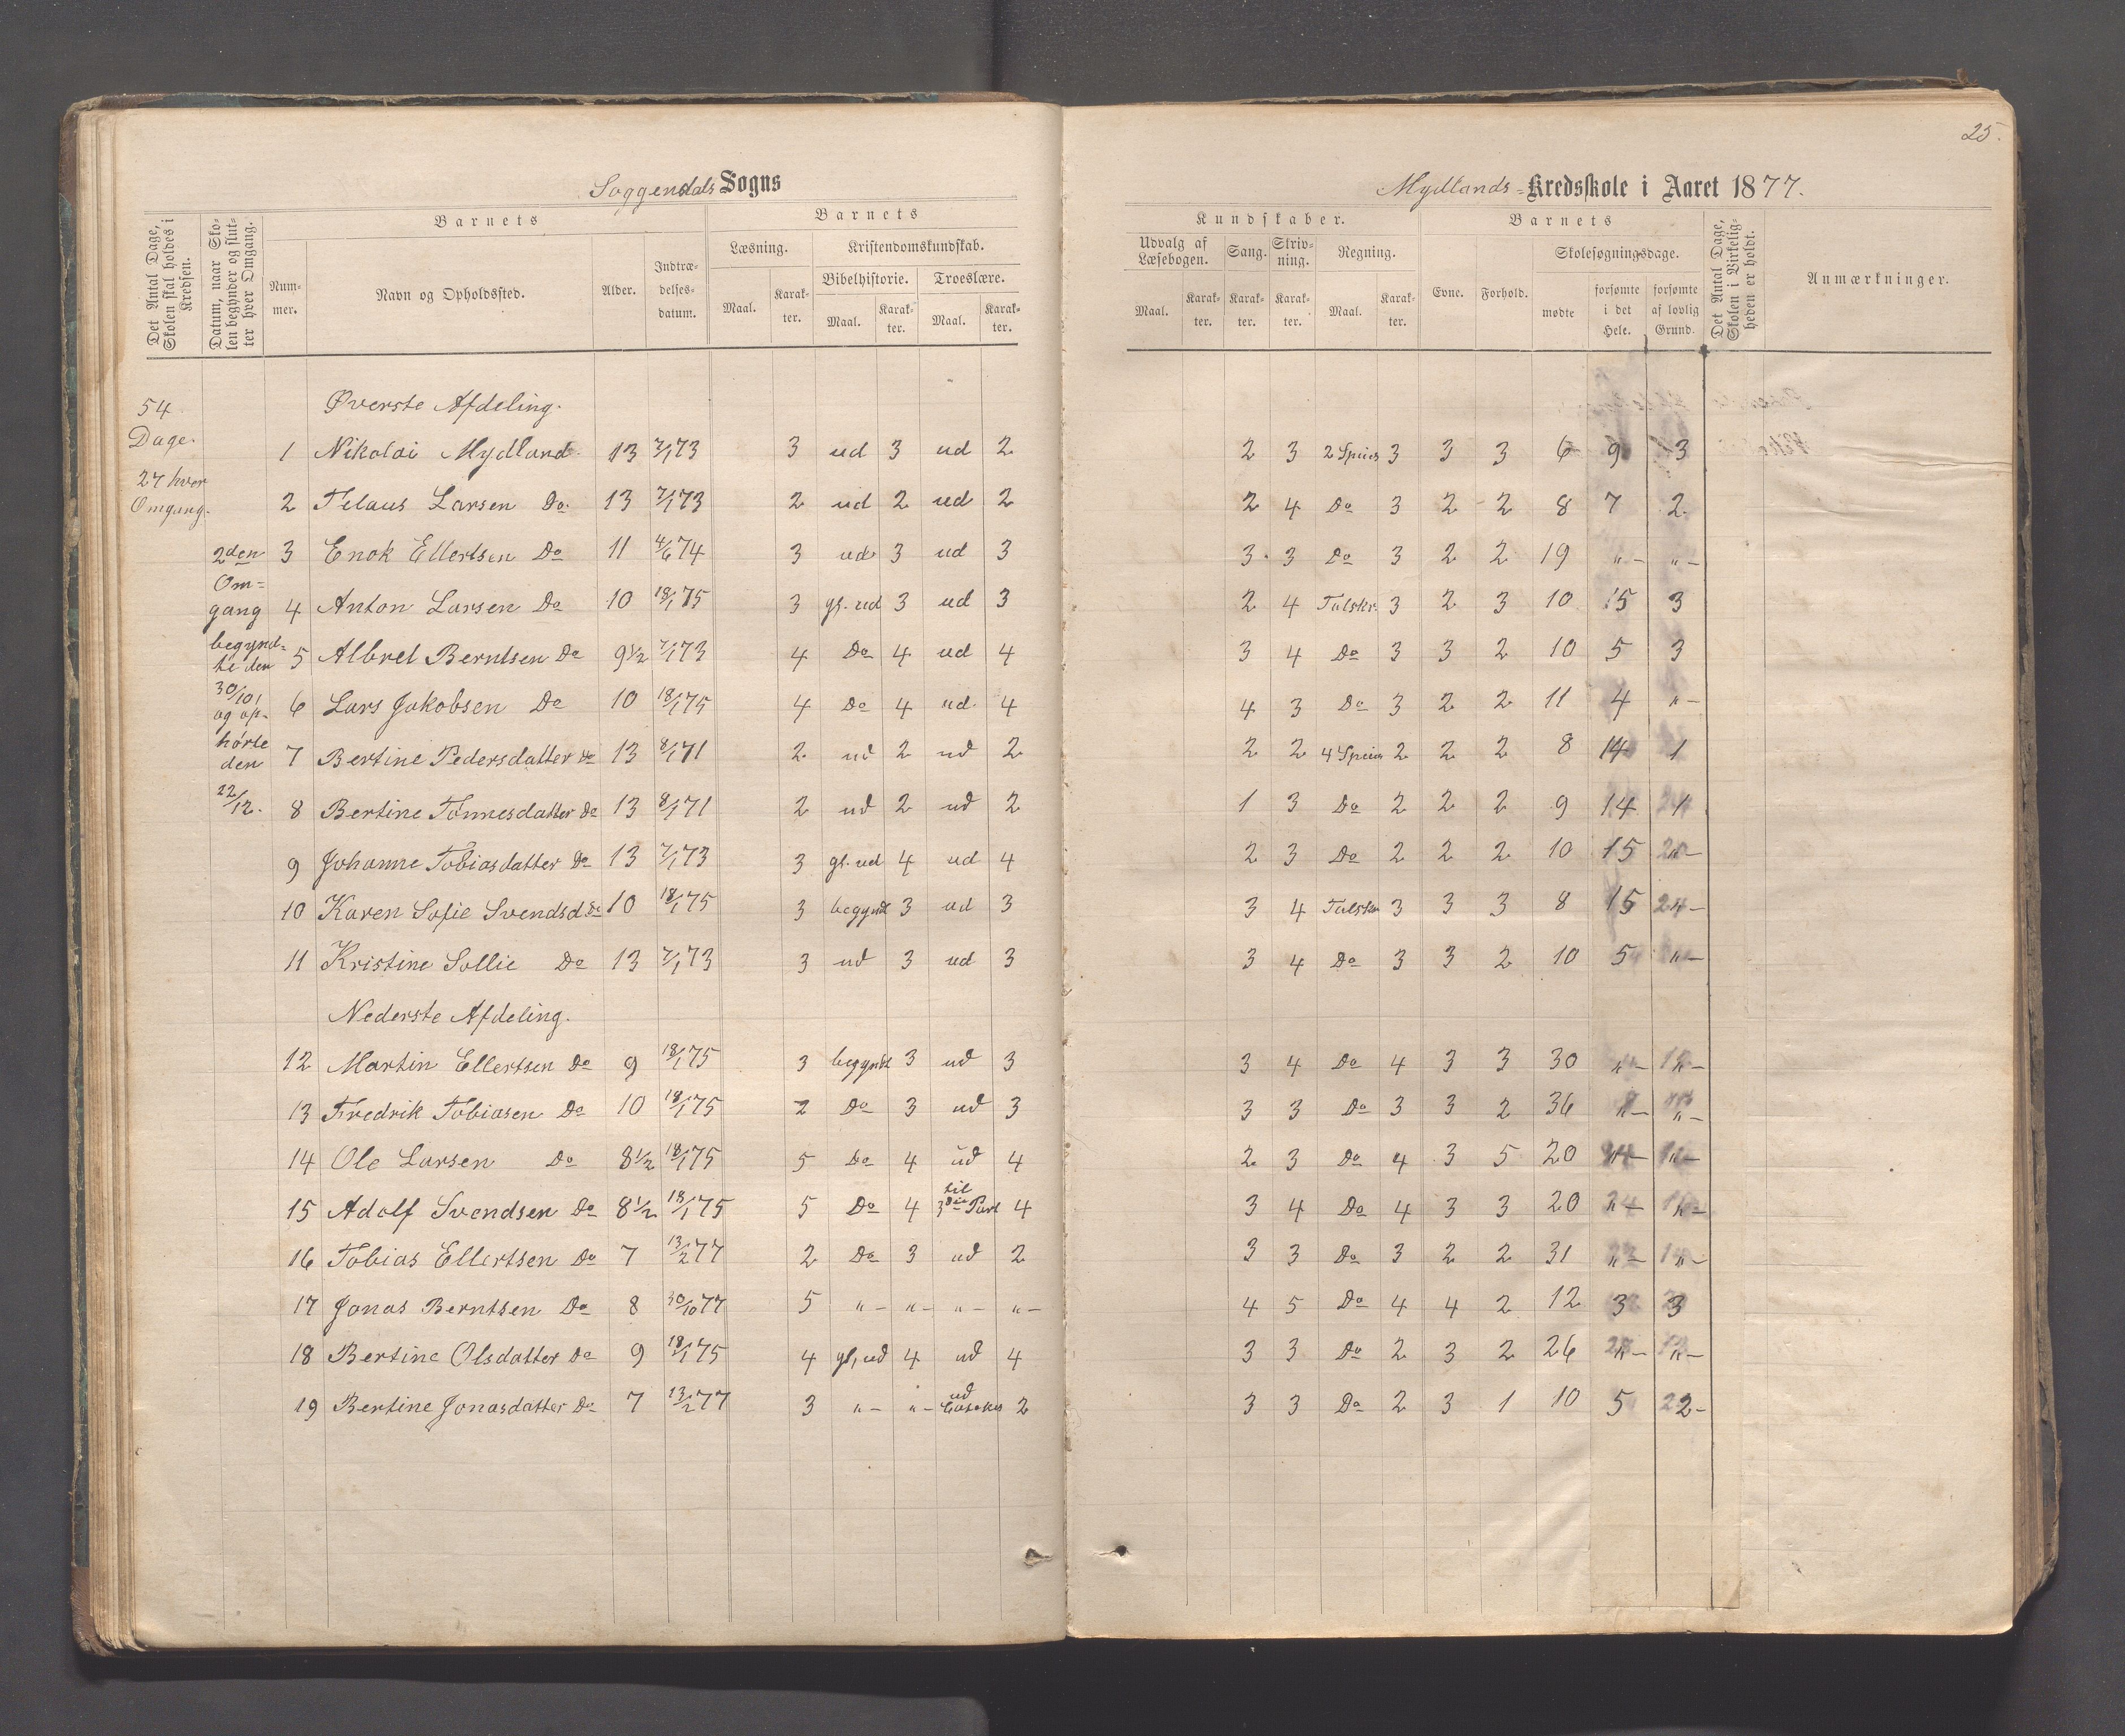 25.
Soggendals Sogns
Mydlands- Kredsskole i Aaret 1877.
Det Antal Dage, Skolen skal holdes i Kredsen.
Datum, naar Skolen begynder og slutter hver Omgang.
Barnets
Nummer.
Navn og Opholdssted.
Alder.
Indtrædelsesdatum.
Barnets
Læsning.
Maal.
Karakter.
Kristendomskundskab.
Bibelhistorie.
Maal.
Karakter.
Troeslære.
Maal.
Karakter.
Kundskaber.
Udvalg af Læsebogen.
Maal.
Karakter.
Sang.
Karakter.
Skrivning.
Karakter.
Regning.
Maal.
Karakter.
Barnets
Evne.
Forhold.
Skolesøgningsdage.
mødte
forsømte i det Hele.
forsømte af lovlig Grund.
Det Antal Dage, Skolen i Virkeligheden er holdt.
Anmærkninger.
54 Dage.
27 hver Omgang.
2den Omgang begyndte den 30/10, og ophørte den 22/12.
Øverste Afdeling.
1 Nikolai Mydland 13 7/1 73 3 ud 3 ud 2 2 3 2 Speies 3 3 3 6 9 3
2 Telaus Larsen Do 13 7/1 73 2 ud 2 ud 2 2 4 Do 3 2 2 8 7 2
3 Enok Ellertsen Do 11 4/6 74 3 ud 3 ud 3 3 3 Do 3 2 2 19 „- „-
4 Anton Larsen Do 10 18/1 75 3 gl. ud 3 ud 3 2 4 Talskr. 3 2 3 10 15 3
5 Albret Berntsen Do 9½ 7/1 73 4 Do 4 ud 4 3 4 Do 3 3 2 10 5 3
6 Lars Jakobsen Do 10 18/1 75 4 Do 4 ud 4 4 3 Do 3 2 2 11 4 „-
7 Bertine Pedersdatter Do 13 8/1 71 2 ud 2 ud 2 2 2 4 Speies 2 2 2 8 14 1
8 Bertine Tønnesdatter Do 13 8/1 71 2 ud 2 ud 2 1 3 Do 2 2 2 9 14 1
9 Johanne Tobiasdatter Do 13 7/1 73 3 gl. ud 4 ud 4 2 3 Do 2 2 2 10 15 „-
10 Karen Sofie Svendsd Do 10 18/1 75 3 begyndt 3 ud 3 3 4 Talskr 3 3 3 8 15 „-
11 Kristine Sollie Do 13 7/1 73 3 ud 3 ud 3 3 4 Do 3 3 2 10 5 „-
Nederste Afdeling.
12 Martin Ellertsen Do 9 18/1 75 3 begyndt 3 ud 3 3 4 Do 4 3 3 30 „- „-
13 Fredrik Tobiasen Do 10 18/1 75 2 Do 3 ud 3 3 3 Do 3 3 2 36 „- „-
14 Ole Larsen Do 8½ 18/1 75 5 Do 4 ud 4 2 3 Do 4 3 5 20 „- „-
15 Adolf Svendsen Do 8½ 18/1 75 5 Do 4 til 3die Part 4 3 4 Do 4 3 3 20 „- „-
16 Tobias Ellertsen Do 7 13/2 77 2 Do 3 ud 2 3 3 Do 3 2 2 31 „- „-
17 Jonas Berntsen Do 8 30/10 77 5 „- „- „- „- 4 5 Do 4 4 2 12 3 3
18 Bertine Olsdatter Do 9 18/1 75 4 gl. ud 4 ud 4 3 3 Do 2 3 2 26 „- „-
19 Bertine Jonasdatter Do 7 13/2 77 3 „- „- ud 2 3 3 Do 2 3 1 10 5 2-